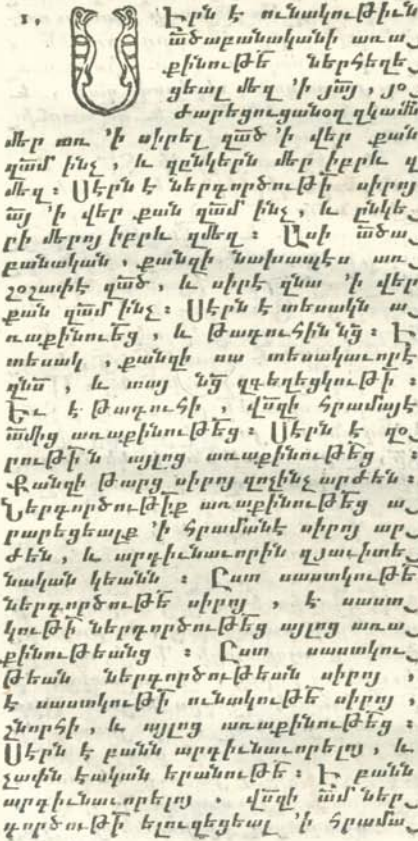 1, Սէրն է ունակութիւն
ա՟ծաբանականի առա֊
քինութե՟ ներհեղե֊
ցեալ մեզ 'ի յա՟յ, յօ֊
ժարեցուցանօղ զկամս
մեր առ 'ի սիրել զա՟ծ 'ի վեր քան
զա՟մ ինչ, և զընկերն մեր իբրև զ
մեզ։ Սէրն է ներգործութի՟ սիրոյ
ա՟յ 'ի վեր քան զա՟մ ինչ, և ընկե֊
րի մերոյ իբրև զմեզ։ Ասի ա՟ծա֊
բանական, քանզի նախապէս առ֊
շօշափէ զա՟ծ, և սիրէ զնա 'ի վեր
քան զա՟մ ինչ։ Սէրն է տեսակն ա֊
ռաքինուե՟ց, և թագուհին նց՟։ Է
տեսակ, քանզի սա տեսակաւորէ
զնս՟, և տայ նց՟ զգեղեցկութի՟։
Եւ է թագուհի, վս՟զի հրամայէ
ա՟մից առաքինութե՟ց։ Սէրն է զօ֊
րութի՟ն այլոց առաքինութե՟ց։
Քանզի թարց սիրոյ զոչինչ արժեն։
Ներգործութի՟ք առաքինութե՟ց ա֊
րարեցեալք 'ի հրամանէ սիրոյ ար֊
ժեն, և արդիւնաւորին զյաւիտե֊
նական կեանն։ Ըստ սաստկութե՟
ներգործութե՟ սիրոյ, է սաստ֊
կութի՟ ներգործութե՟ց այլոց առա֊
քինութեանց։ Ըստ սաստկու֊
թեան ներգործութեան սիրոյ,
է սաստկութի՟ ունակութե՟ սիրոյ,
շնորհի, և այլոց առաքինութե՟ց։
Սէրն է բանն արդիւնաւորելոյ, և
չափն էական երանութե՟։ Է բանն
արդիւնաւորելոյ, վս՟զի ա՟մ ներ֊
գործութի՟ ելուզեցեալ 'ի հրամա֊